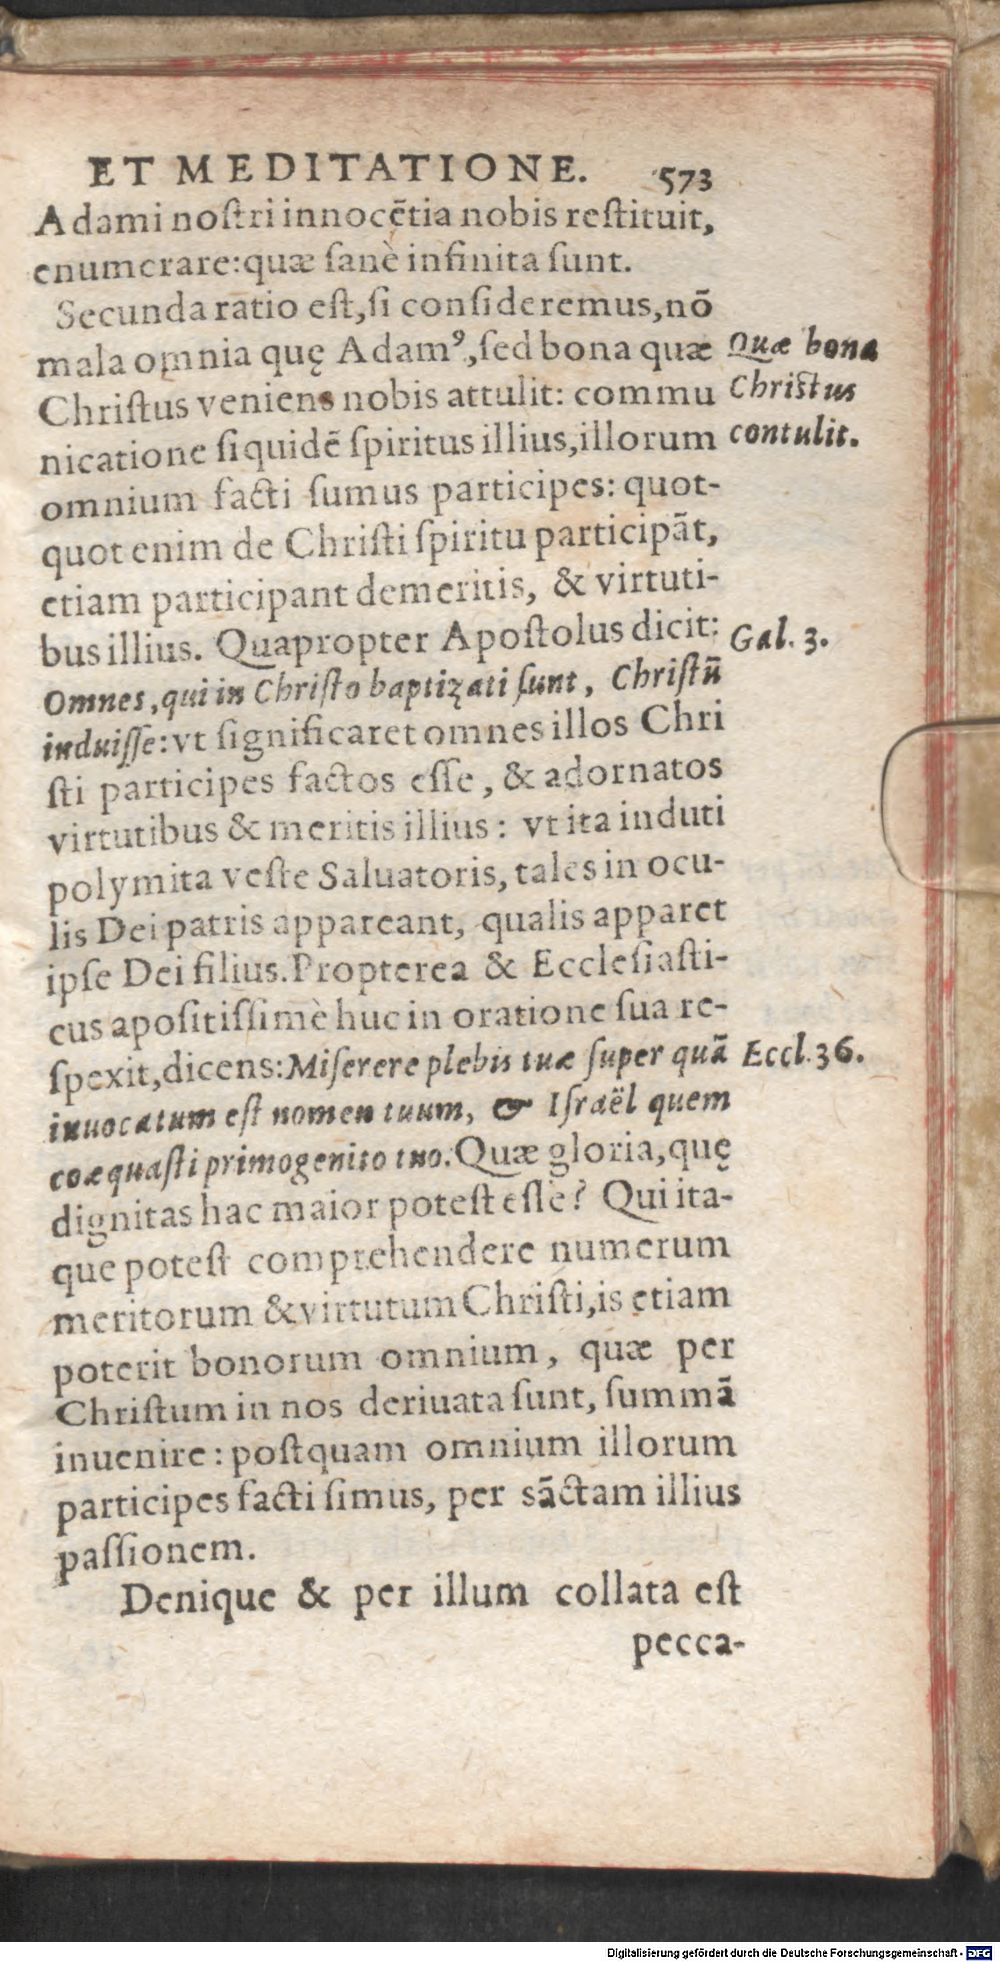 ET MEDITATIONE. 573
Adami noſtri innocẽtia nobis reſtituit,
enumerare: quæ ſanè infinita ſunt.
Secunda ratio eſt, ſi conſideremus, nõ
mala omnia quę Adamꝰ, ſed bona quæ
Quæ bona
Chriſtus veniens nobis attulit: commu
Chriſtus
nicatione ſiquidẽ ſpiritus illius, illorum
contulit.
omnium facti ſumus participes: quot-
quot enim de Chriſti ſpiritu participãt,
etiam participant de meritis, & virtuti-
bus illius. Quapropter Apoſtolus dicit:
Gal. 3.
Omnes, qui in Chriſto baptizati ſunt, Chriſtũ
induiſſe: vt ſignificaret omnes illos Chri
ſti participes factos eſſe, & adornatos
virtutibus & meritis illius: vt ita induti
polymita veſte Saluatoris, tales in ocu-
lis Dei patris appareant, qualis apparet
ipſe Dei filius. Propterea & Eccleſiaſti-
cus apoſitiſſimè huc in oratione ſua re-
ſpexit, dicens: Miſerere plebis tuæ ſuper quã
Eccl. 36.
inuocatum eſt nomen tuum, & Iſraël quem
coæquaſti primogenito tuo. Quæ gloria, quę
dignitas hac maior poteſt eſſe? Qui ita-
que poteſt comprehendere numerum
meritorum & virtutum Chriſti, is etiam
poterit bonorum omnium, quæ per
Chriſtum in nos deriuata ſunt, ſummã
inuenire: poſtquam omnium illorum
participes facti ſimus, per sãctam illius
paſſionem.
Denique & per illum collata eſt
pecca-
Digitalisierung gefördert durch die Deutsche Forschungsgemeinschaft - DFG